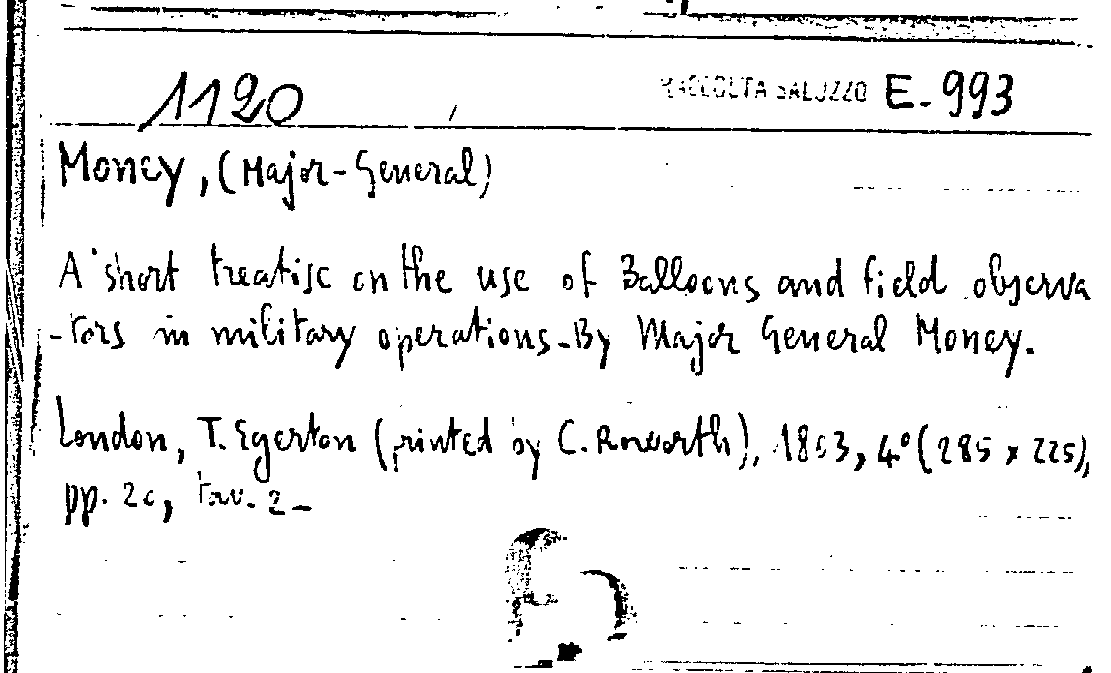 1120
RACCOLTA SALUZZO E-993
Money, (Major-General)
A short treatise on the use of Balloons and field observa
-tors in military operations-By Major General Money.
London, T. Egerton (printed by C. Roworth), 1803, 4° (285 x 225),
pp. 20, tav. 2-